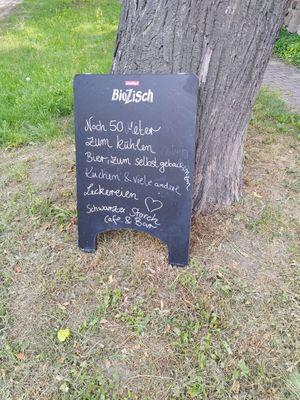 BioZisch
Noch 50 Meter
zum kühlen
Bier, zum selbstgebackenen
Kuchen & viele andere
Leckereien
Schwarzer Storch
Café & Bar